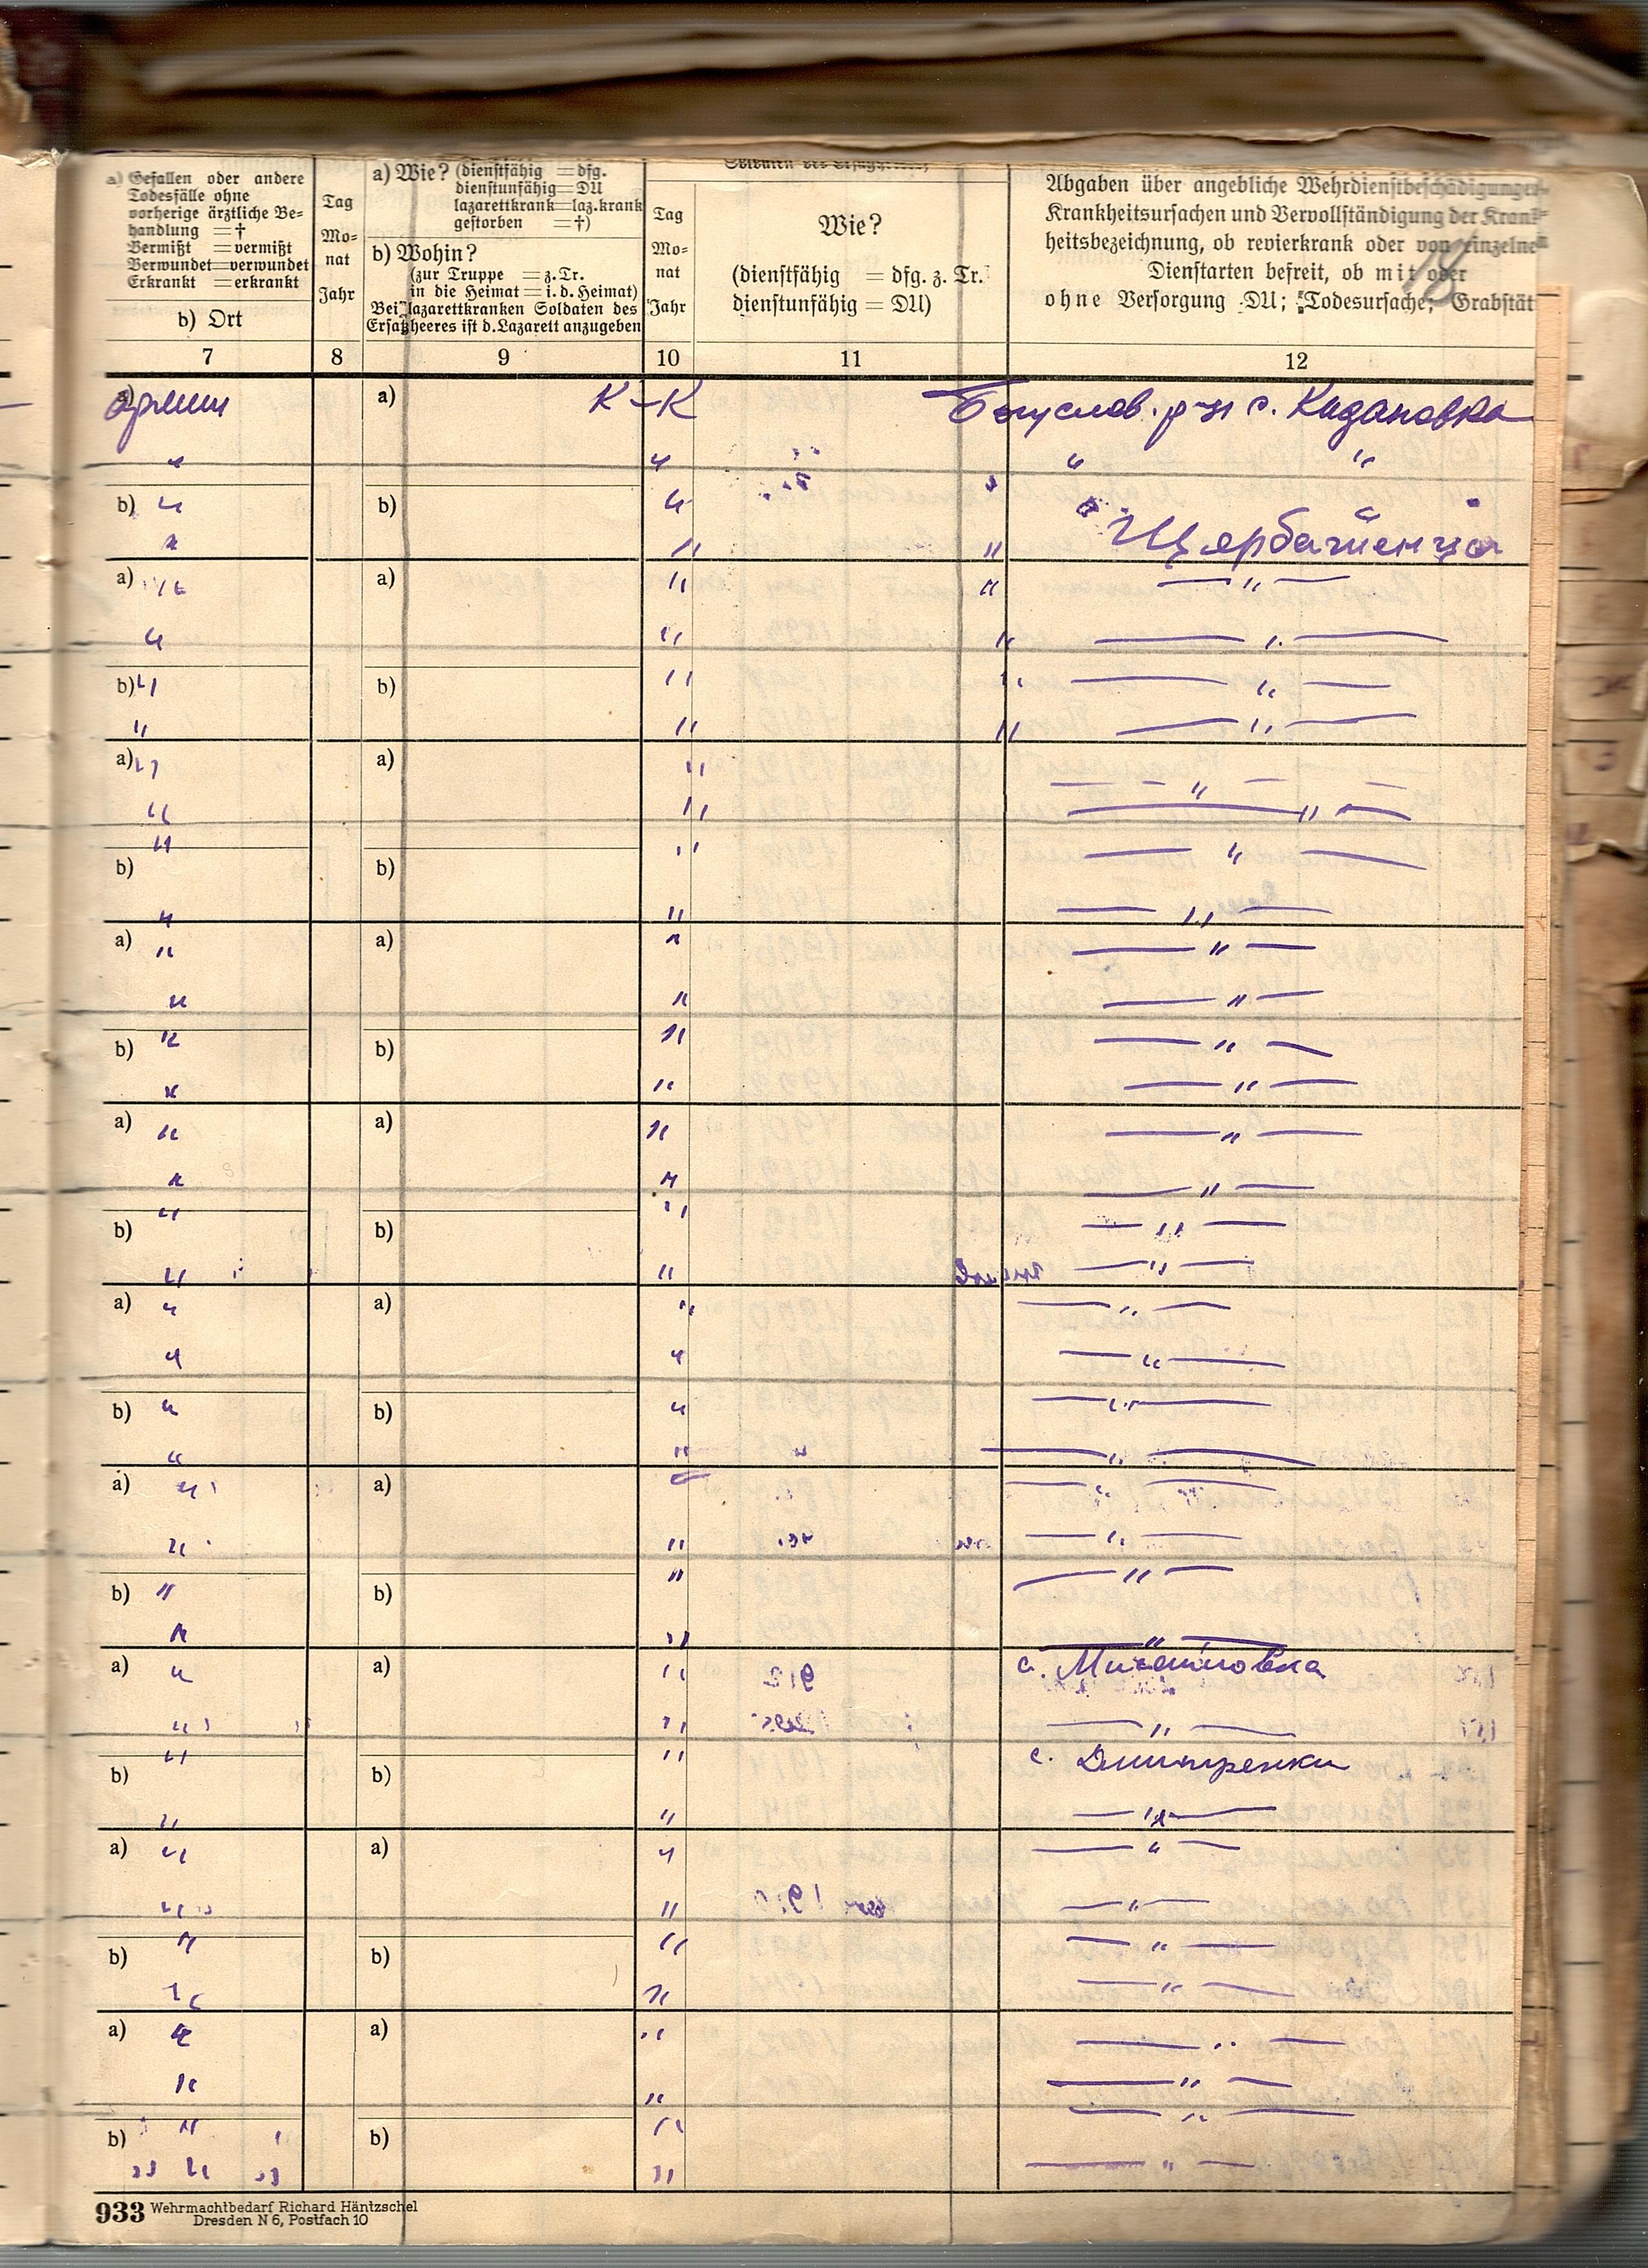 a) Gefallen oder andere
Todesfälle ohne
vorherige ärztliche Be=
handlung = †
Vermißt = vermißt
Verwundet = verwundet
Erkrankt = erkrankt
b) Ort
Tag
Mo=
nat
Jahr
a) Wie? (dienstfähig = dfg.
dienstunfähig = DU
lazarettkrank = laz.krank
gestorben = †)
b) Wohin?
(zur Truppe = z. Tr.
in die Heimat = i. d. Heimat)
Bei lazarettkranken Soldaten des
Ersatzheeres ist d. Lazarett anzugeben
Soldaten des Ersatzheeres
Tag
Mo=
nat
Jahr
Wie?
(dienstfähig = dfg. z. Tr.
dienstunfähig = DU)
Abgaben über angebliche Wehrdienstbeschädigungen
Krankheitsursachen und Vervollständigung der Krank=
heitsbezeichnung, ob revierkrank oder von einzelnen
Dienstarten befreit, ob mit oder
ohne Versorgung DU; Todesursache; Grabstät
18
7 8 9 10 11 12
a) армии a) К-К Богуслав. р-н с. Кидановка
" " " "
b) " b) " " "
" " " Щербашенцы
a) " a) " " — " —
" " " — " —
b) " b) " " — " —
" " " — " —
a) " a) " — " —
" " — " —
b) " b) " — " —
" " — " —
a) " a) " — " —
" " — " —
b) " b) " — " —
" " — " —
a) " a) " — " —
" " — " —
b) " b) " — " —
" " — " —
a) " a) " — " —
" " — " —
b) " b) " — " —
" " — " —
a) " a) — " —
" " — " —
b) " b) " — " —
" " — " —
a) " a) " с. Мисайловка
" " — " —
b) " b) " с. Дмитренки
" " — " —
a) " a) " — " —
" " — " —
b) " b) " — " —
" " — " —
a) " a) " — " —
" " — " —
b) " b) " — " —
" " — " —
933 Wehrmachtbedarf Richard Häntzschel
Dresden N 6, Postfach 10